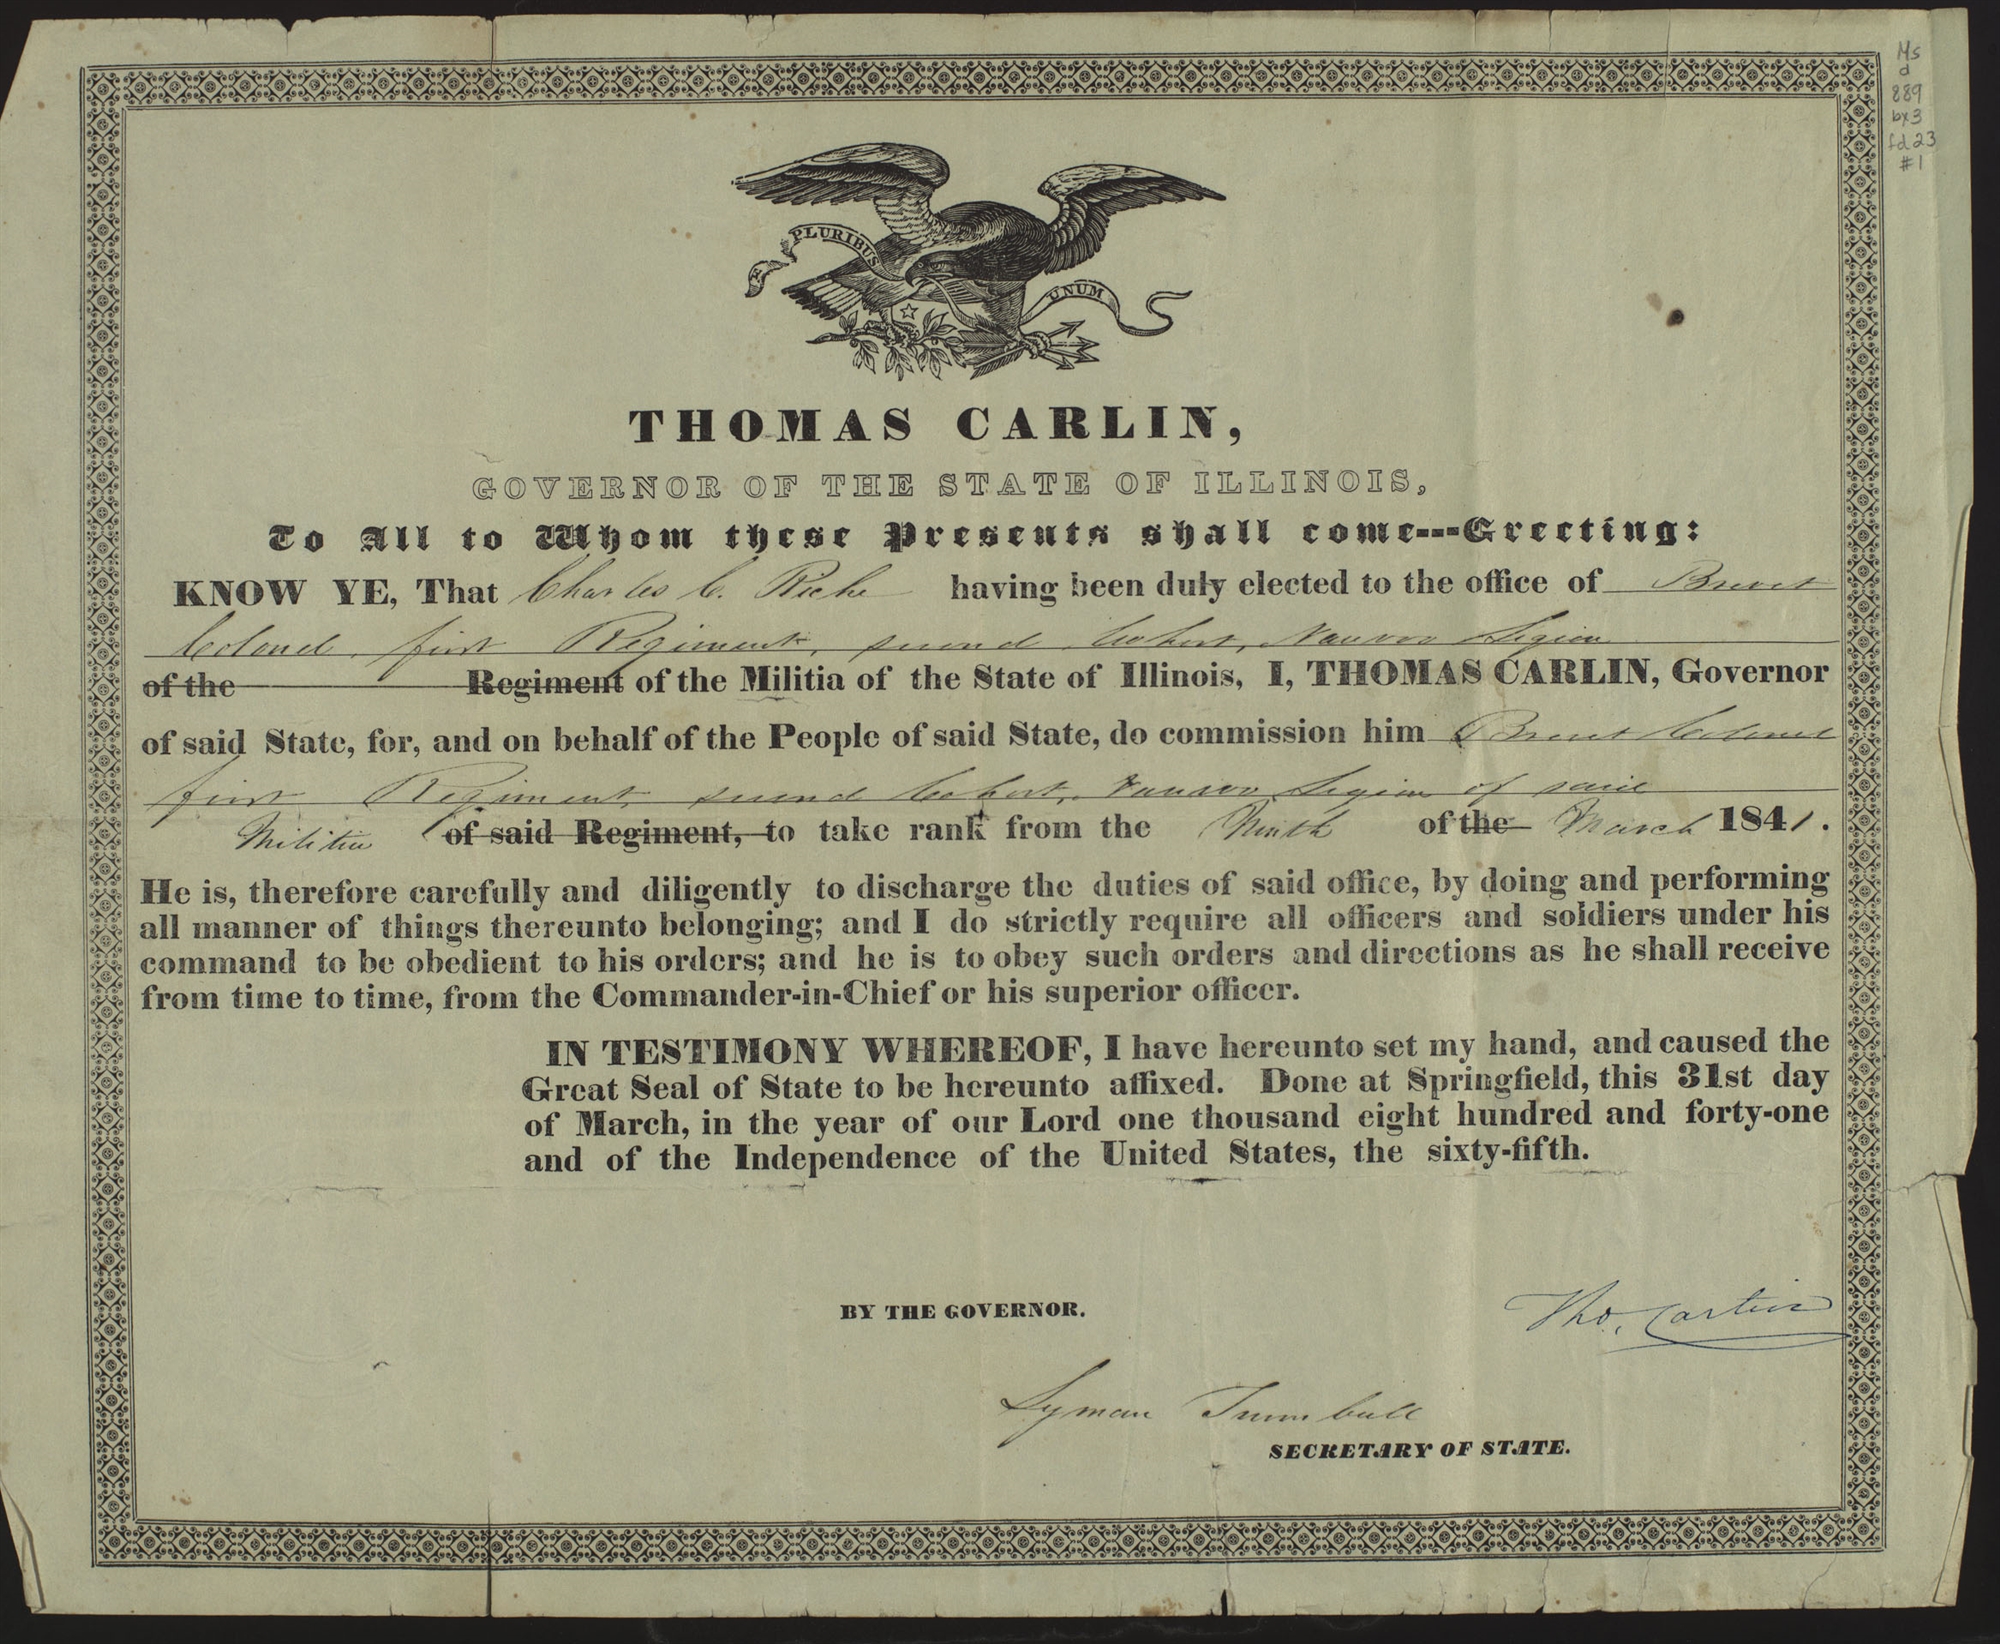 Ms
d
889
bx3
fd23
#1
E PLURIBUS UNUM
THOMAS CARLIN,
GOVERNOR OF THE STATE OF ILLINOIS,
To All to Whom these Presents shall come---Greeting:
KNOW YE, That Charles C. Riche having been duly elected to the office of Brevet
Colonel, first Regiment, second Cohort, Nauvoo Legion
of the Regiment of the Militia of the State of Illinois, I, THOMAS CARLIN, Governor
of said State, for, and on behalf of the People of said State, do commission him Brevet Colonel
first Regiment, second Cohort, Nauvoo Legion of said
Militia of said Regiment, to take rank from the Ninth of the March 1841.
He is, therefore carefully and diligently to discharge the duties of said office, by doing and performing
all manner of things thereunto belonging; and I do strictly require all officers and soldiers under his
command to be obedient to his orders; and he is to obey such orders and directions as he shall receive
from time to time, from the Commander-in-Chief or his superior officer.
IN TESTIMONY WHEREOF, I have hereunto set my hand, and caused the
Great Seal of State to be hereunto affixed. Done at Springfield, this 31st day
of March, in the year of our Lord one thousand eight hundred and forty-one
and of the Independence of the United States, the sixty-fifth.
BY THE GOVERNOR.
Tho. Carlin
Lyman Trumbull
SECRETARY OF STATE.